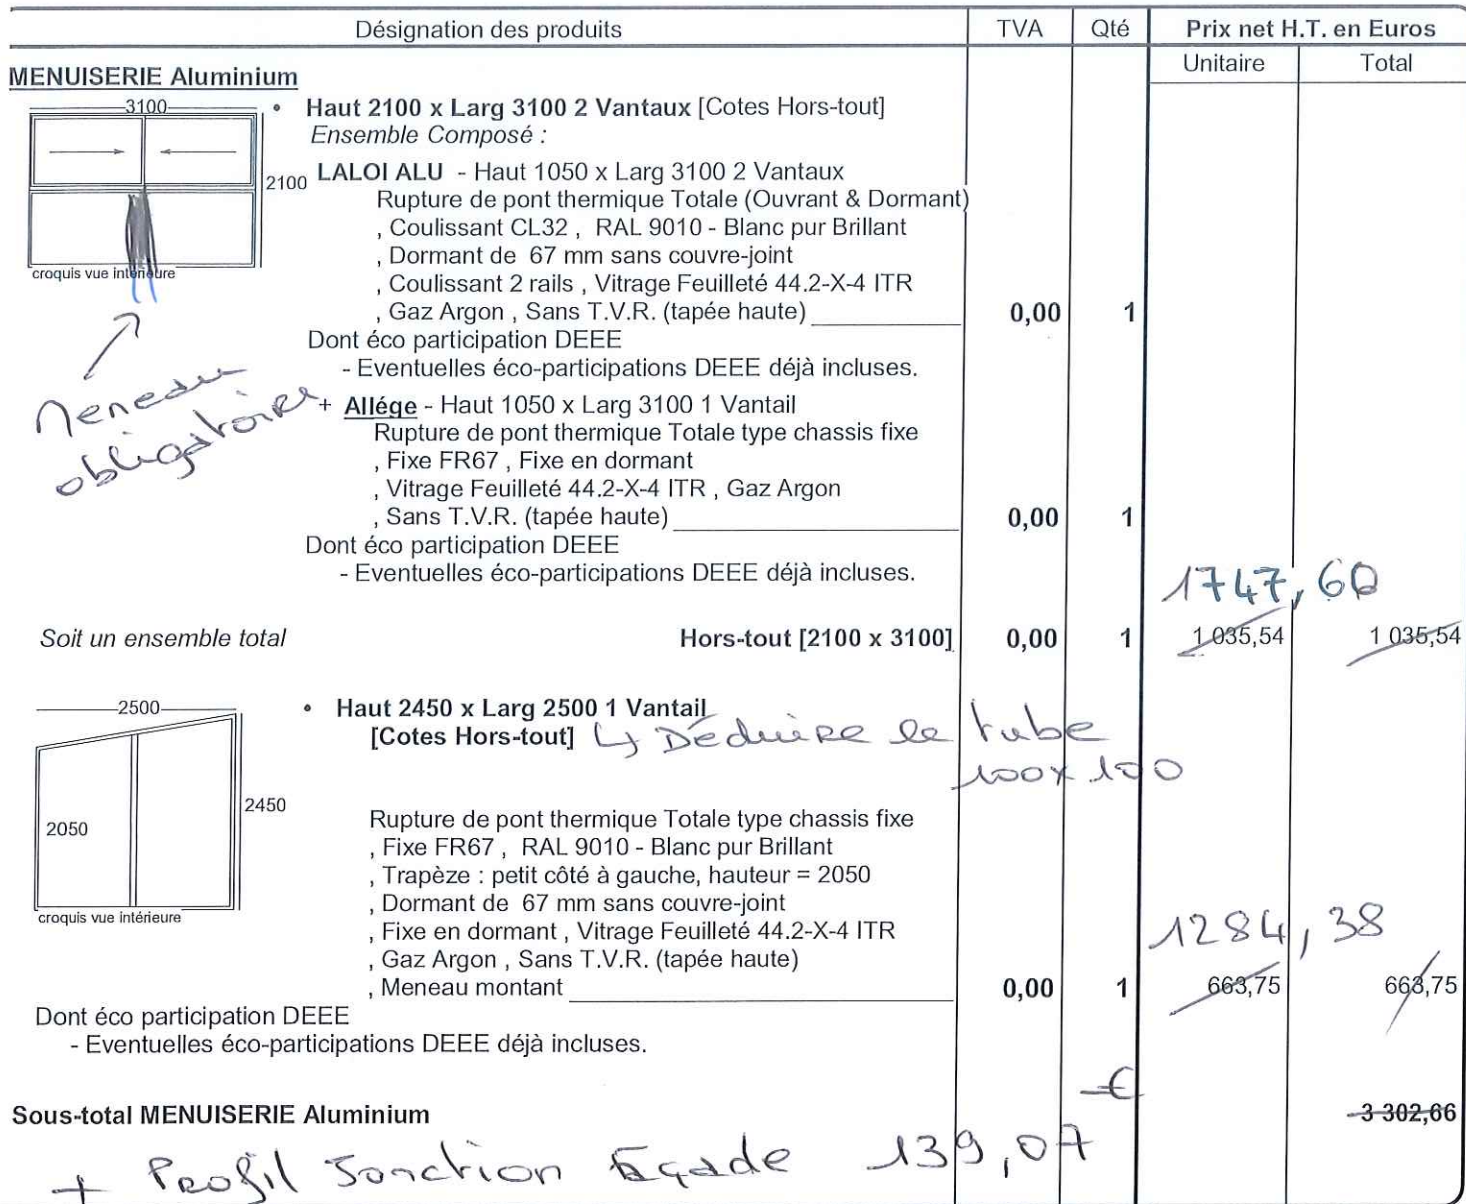 Désignation des produits TVA Qté Prix net H.T. en Euros
Unitaire Total
MENUISERIE Aluminium
3100
2100
croquis vue intérieure
• Haut 2100 x Larg 3100 2 Vantaux [Cotes Hors-tout]
Ensemble Composé :
LALOI ALU - Haut 1050 x Larg 3100 2 Vantaux
Rupture de pont thermique Totale (Ouvrant & Dormant)
, Coulissant CL32 , RAL 9010 - Blanc pur Brillant
, Dormant de 67 mm sans couvre-joint
, Coulissant 2 rails , Vitrage Feuilleté 44.2-X-4 ITR
, Gaz Argon , Sans T.V.R. (tapée haute) 0,00 1
Dont éco participation DEEE
- Eventuelles éco-participations DEEE déjà incluses.
Meneau
obligatoire
+ Allége - Haut 1050 x Larg 3100 1 Vantail
Rupture de pont thermique Totale type chassis fixe
, Fixe FR67 , Fixe en dormant
, Vitrage Feuilleté 44.2-X-4 ITR , Gaz Argon
, Sans T.V.R. (tapée haute) 0,00 1
Dont éco participation DEEE
- Eventuelles éco-participations DEEE déjà incluses.
1747,60
Soit un ensemble total Hors-tout [2100 x 3100] 0,00 1 1 035,54 1 035,54
2500
2450
2050
croquis vue intérieure
• Haut 2450 x Larg 2500 1 Vantail
[Cotes Hors-tout] ↳ Déduire le tube
100x100
Rupture de pont thermique Totale type chassis fixe
, Fixe FR67 , RAL 9010 - Blanc pur Brillant
, Trapèze : petit côté à gauche, hauteur = 2050
, Dormant de 67 mm sans couvre-joint
, Fixe en dormant , Vitrage Feuilleté 44.2-X-4 ITR
, Gaz Argon , Sans T.V.R. (tapée haute)
1284,38
, Meneau montant 0,00 1 663,75 663,75
Dont éco participation DEEE
- Eventuelles éco-participations DEEE déjà incluses.
Sous-total MENUISERIE Aluminium 3 302,66
+ Profil Jonction façade 139,07 €